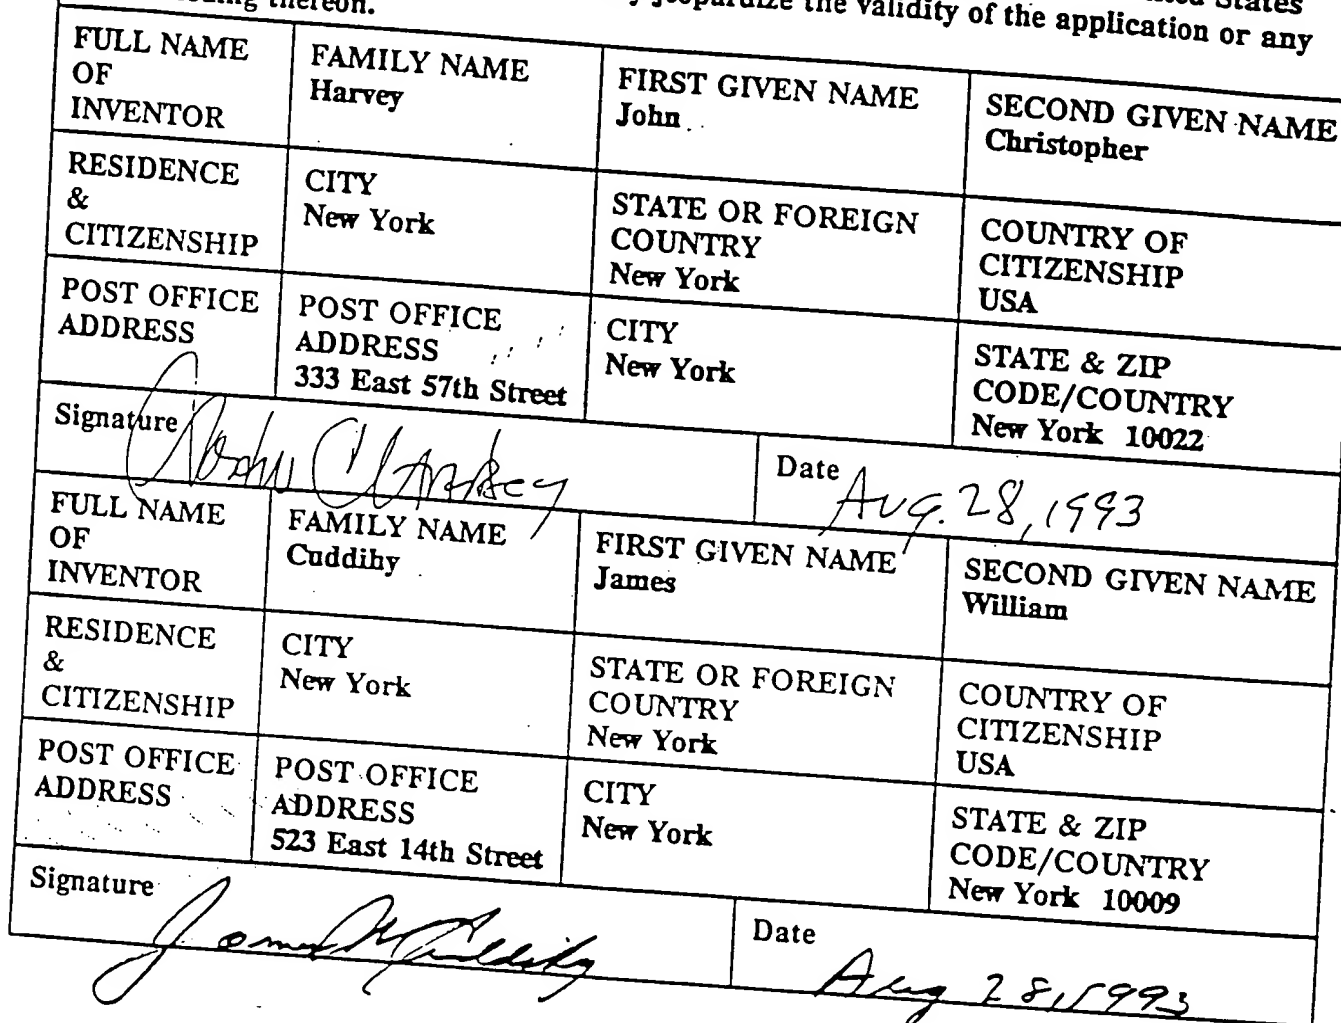 States
thereon. jeopardize the validity of the application or any
FULL NAME
OF
INVENTOR
FAMILY NAME
Harvey
FIRST GIVEN NAME
John
SECOND GIVEN NAME
Christopher
RESIDENCE
&
CITIZENSHIP
CITY
New York
STATE OR FOREIGN
COUNTRY
New York
COUNTRY OF
CITIZENSHIP
USA
POST OFFICE
ADDRESS
POST OFFICE
ADDRESS
333 East 57th Street
CITY
New York
STATE & ZIP
CODE/COUNTRY
New York 10022
Signature
Date Aug. 28, 1993
FULL NAME
OF
INVENTOR
FAMILY NAME
Cuddihy
FIRST GIVEN NAME
James
SECOND GIVEN NAME
William
RESIDENCE
&
CITIZENSHIP
CITY
New York
STATE OR FOREIGN
COUNTRY
New York
COUNTRY OF
CITIZENSHIP
USA
POST OFFICE
ADDRESS
POST OFFICE
ADDRESS
523 East 14th Street
CITY
New York
STATE & ZIP
CODE/COUNTRY
New York 10009
Signature James W Cuddihy
Date Aug 28, 1993